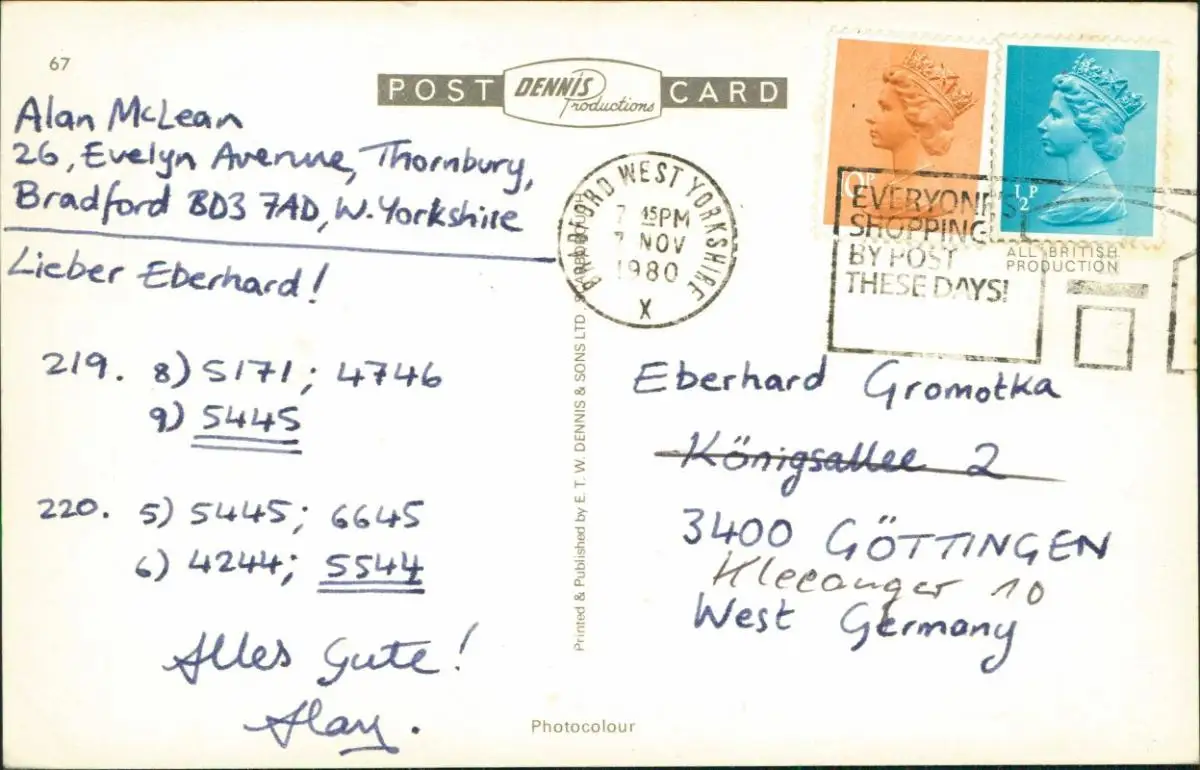 67
POST DENNIS Productions CARD
Alan McLean
26, Evelyn Avenue, Thornbury,
Bradford BD3 7AD, W. Yorkshire
Lieber Eberhard!
219. 8) 5171; 4746
9) 5445
220. 5) 5445; 6645
6) 4244; 5544
Alles Gute!
Alan.
Printed & Published by E. T. W. DENNIS & SONS LTD. SCARBOROUGH
Photocolour
BRADFORD WEST YORKSHIRE
7 45PM
7 NOV
1980
X
10P
½P
EVERYONE'S
SHOPPING
BY POST
THESE DAYS!
ALL BRITISH
PRODUCTION
Eberhard Gromotka
Königsallee 2
3400 GÖTTINGEN
Kleeanger 10
West Germany